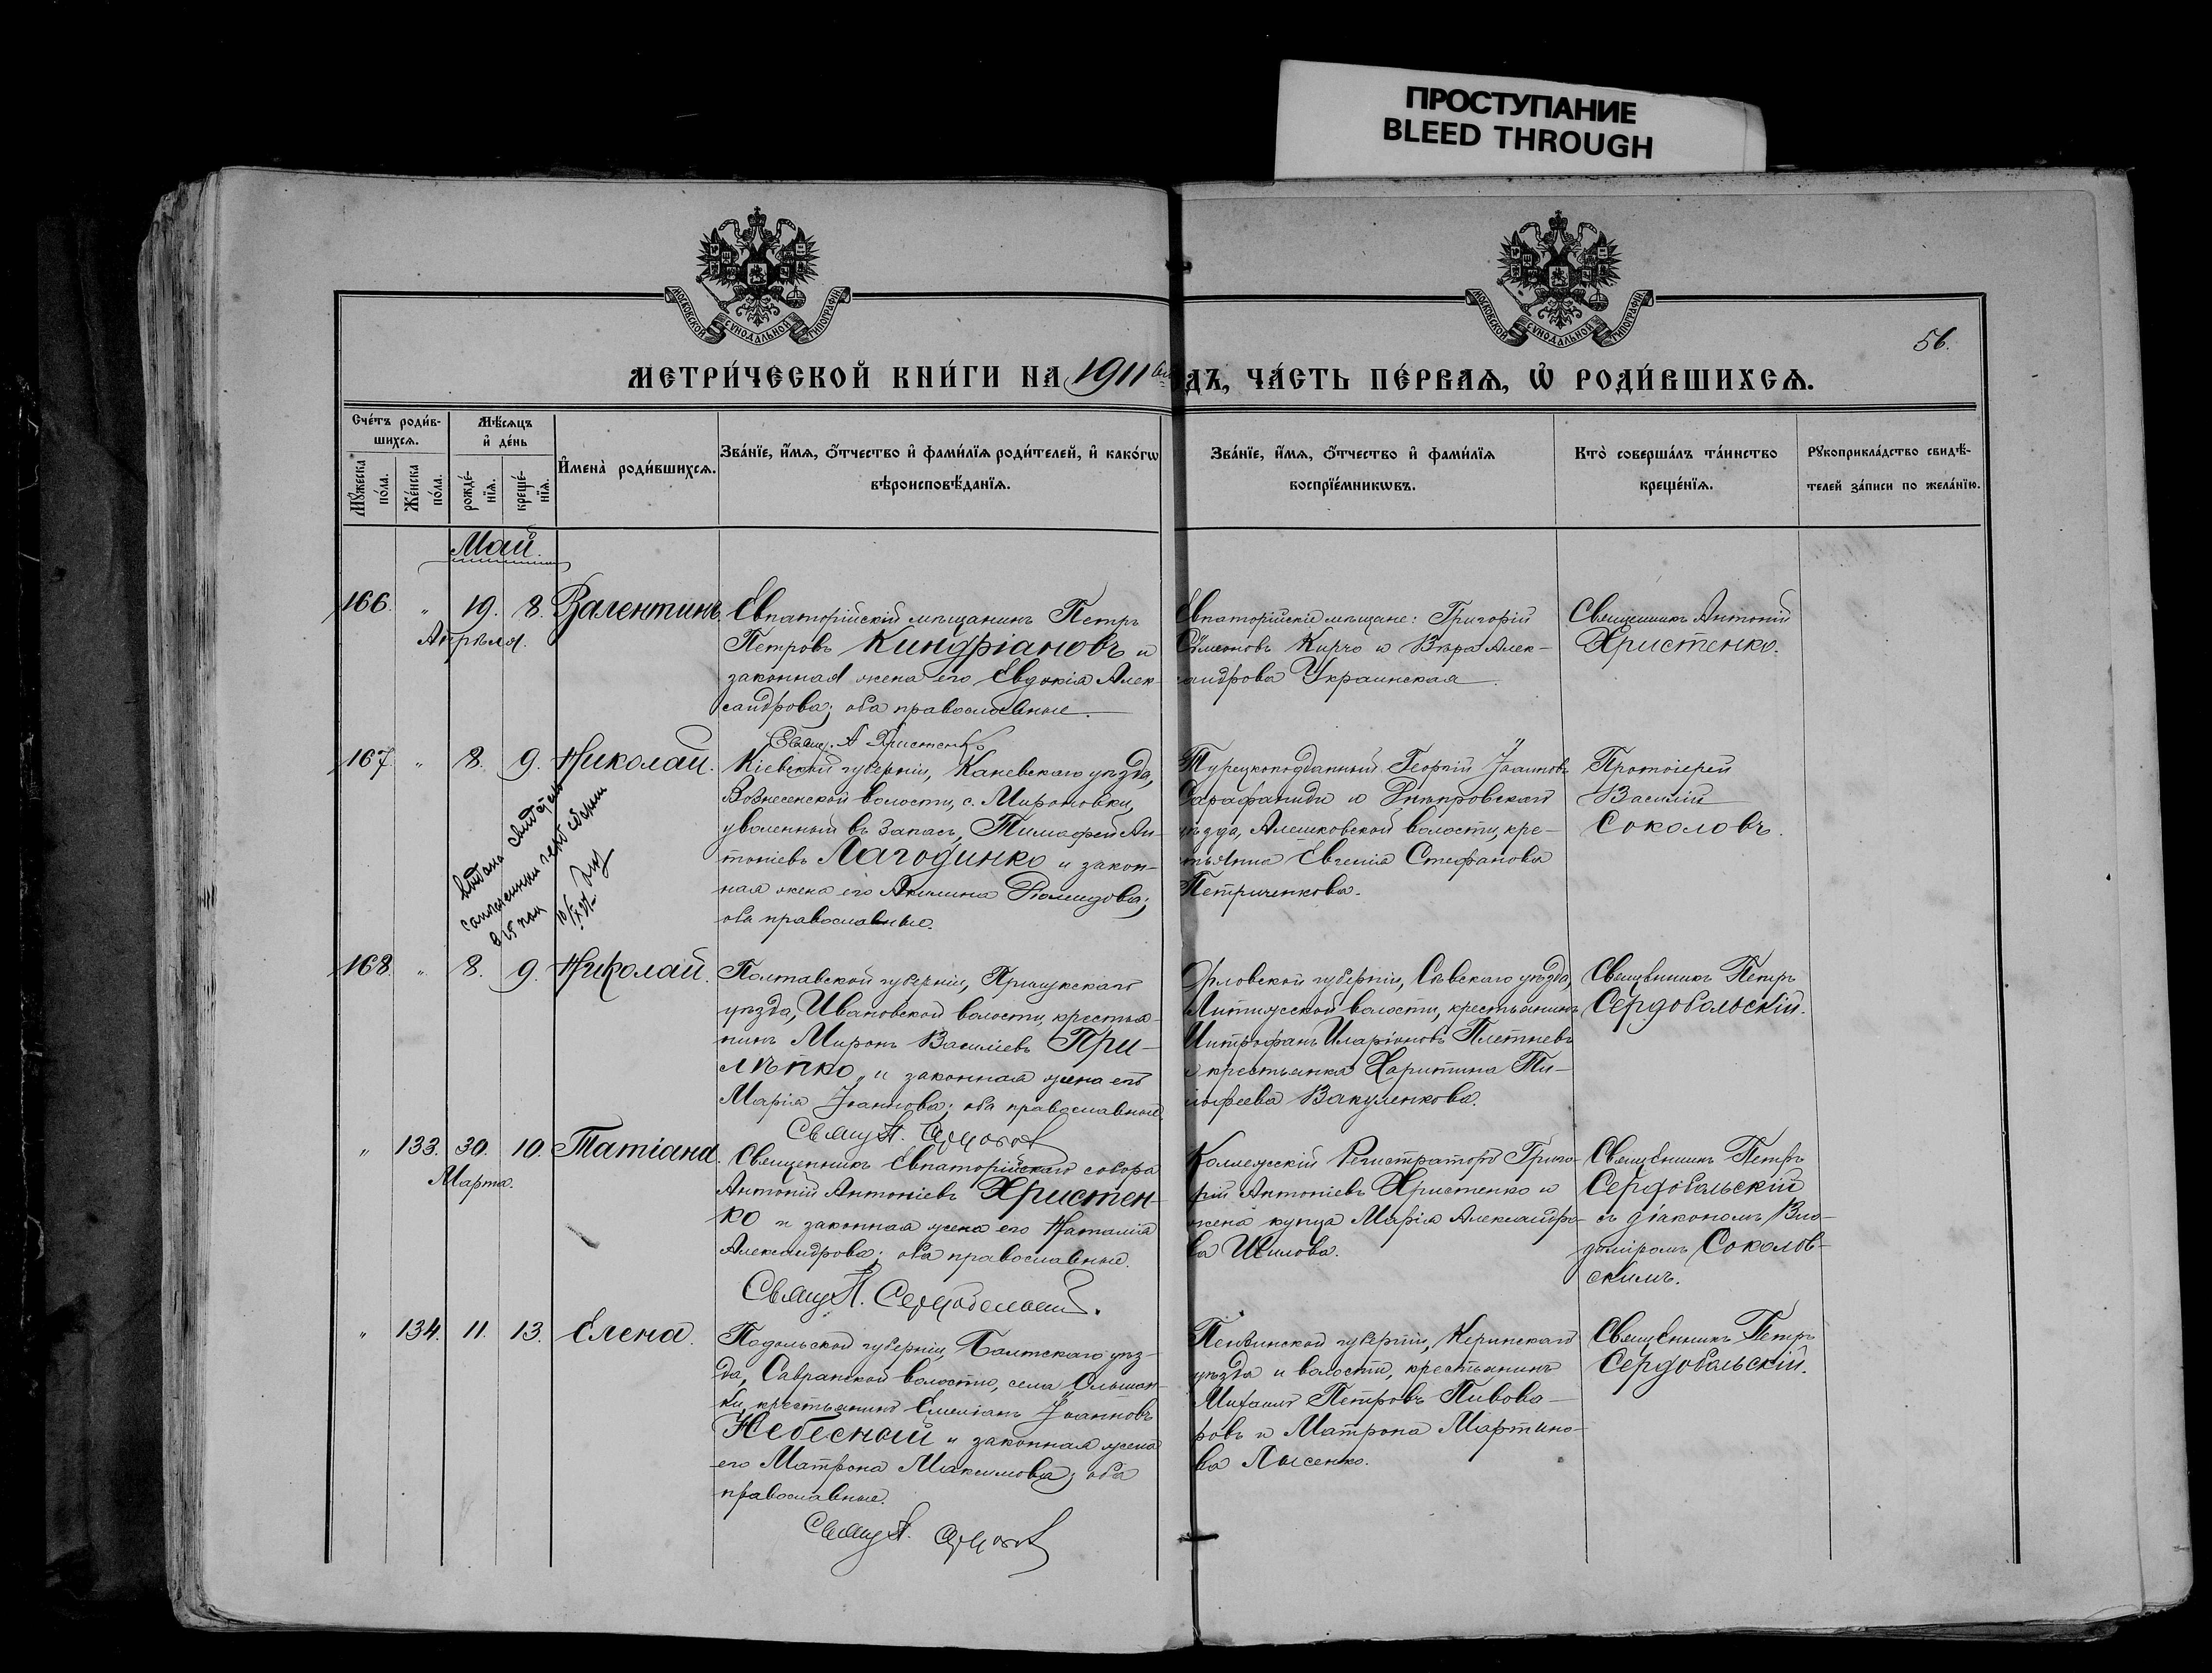 ПРОСТУПАНИЕ
BLEED THROUGH
МОСКОВСКОЙ СѴНОДАЛЬНОЙ ТИПОГРАФІИ
МОСКОВСКОЙ СѴНОДАЛЬНОЙ ТИПОГРАФІИ
56.
МЕТРИ́ЧЕСКОЙ КНИ́ГИ НА 1911 ДЪ, ЧА́СТЬ ПЕ́РВАѦ, Ѡ РОДИ́ВШИХСѦ.
Сче́тъ роди́в-
шихсѧ.
Мꙋ́жеска
по́ла.
Же́нска
по́ла.
Мѣ́сѧцъ
и҆ де́нь
рожде́-
нїѧ.
креще́-
нїѧ.
И҆мена̀ роди́вшихсѧ.
Зва́нїе, и҆́мѧ, ѻ҆́тчество и҆ фами́лїѧ роди́телей, и҆ како́гѡ
вѣроисповѣ́данїѧ.
Зва́нїе, и҆́мѧ, ѻ҆́тчество и҆ фами́лїѧ
воспрїе́мникѡвъ.
Кто̀ соверша́лъ та́инство
креще́нїѧ.
Рꙋкоприкла́дство свидѣ́-
телей за́писи по жела́нїю.
Май.
166. " 19. 8. Валентинъ.
Апрѣля.
Евпаторійскій мѣщанинъ Петръ
Петровъ Киндріановъ и
законная жена его Евдокія Алек-
сандрова; оба православные.
Свящ. А Христенко
Евпаторійскіе мѣщане: Григорій
Симеоновъ Кирчо и Вѣра Алек-
сандрова Украинская.
Священникъ Антоній
Христенко.
167. " 8. 9. Николай.
Кіевской губерніи, Каневскаго уѣзда,
Вознесенской волости, с. Мироновки,
уволенный въ запасъ, Тимофей Ан-
тоніевъ Лагодинко и закон-
ная жена его Акилина Діомидова;
оба православные.
Турецкоподданный Георгій Іоанновъ
Сарафаниди и Днѣпровскаго
уѣзда, Алешковской волости, кре-
стьянка Евгенія Стефанова
Петриченкова.
Протоіерей
Василій
Соколовъ.
168. " 8. 9. Николай.
Полтавской губерніи, Прилукскаго
уѣзда, Ивановской волости, крестья-
нинъ Миронъ Василіевъ При-
лѣпко, и законная жена его
Марія Іоаннова; оба православные.
Свящ П.
Орловской губерніи, Сѣвскаго уѣзда,
Литижской волости, крестьянинъ
Митрофанъ Иларіоновъ Плетневъ
и крестьянка Харитина Ти-
мофеева Вакуленкова.
Священникъ Петръ
Сердобольскій.
" 133. 30. 10. Татіана.
Марта.
Священникъ Евпаторійскаго собора
Антоній Антоніевъ Христен-
ко и законная жена его Наталія
Александрова; оба православные.
Свящ П. Сердобольскій.
Коллежскій Регистраторъ Григо-
рій Антоніевъ Христенко и
жена купца Марія Александро-
ва Шилова.
Священникъ Петръ
Сердобольскій
съ діакономъ Вла-
диміромъ Соколов-
скимъ.
" 134. 11. 13. Елена.
Подольской губерніи, Балтскаго уѣз-
да, Савранской волости, села Ольшан-
ки, крестьянинъ Емеліанъ Іоанновъ
Небесный и законная жена
его Матрона Максимова; оба
православные.
Свящ П.
Пензинской губерніи, Керинскаго
уѣзда и волости, крестьянинъ
Михаилъ Петровъ Пивова-
ровъ и Матрона Мартино-
ва Лысенко.
Священникъ Петръ
Сердобольскій.